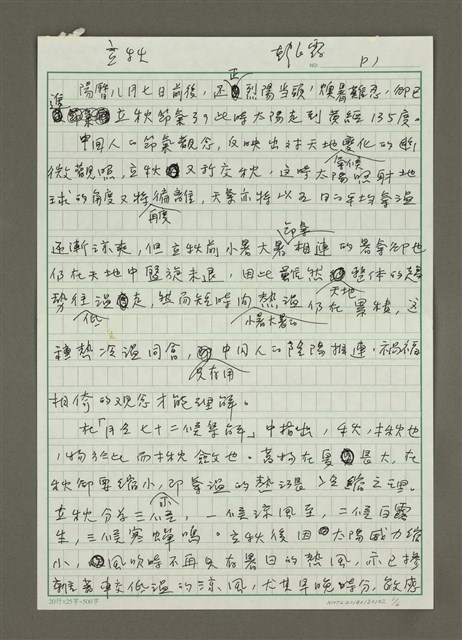 立秋
P1
陽曆八月七日前後,還正烈陽當頭,燠暑難忍,卻已
進 立秋節氣了,此時太陽走到黃經135度。
中國人的節氣觀念,反映出對天地變化的
微觀照,立秋又 秋,這時太陽照射地
球的角度又 偏離,天氣亦將以五日 均氣溫
再度
逐漸涼爽,但立秋前小暑大暑節氣相連的暑氣卻也
仍在天地中盤旋未退,因此雖然 整體的趨
天地
勢往低溫走,然而短時間熱溫仍在累積,這
小暑大暑的
種熱冷溫同會, 中國人的陰陽推連、禍福
具存用
相倚的觀念才能理解。
在「月令七十二候集解」中指出,秋,揫也
,物於此而揫斂也。萬物在夏 長大,在
秋卻要縮小,即氣溫的熱 之理。
立秋分為三候,一候涼風至,二候白露
生,三候寒蟬鳴。立秋後因太陽威力縮
小, 風吹時不再只有暑日的熱風,亦已摻
著 低溫的涼風,尤其早晚時分,敏感
20行×25字=500字